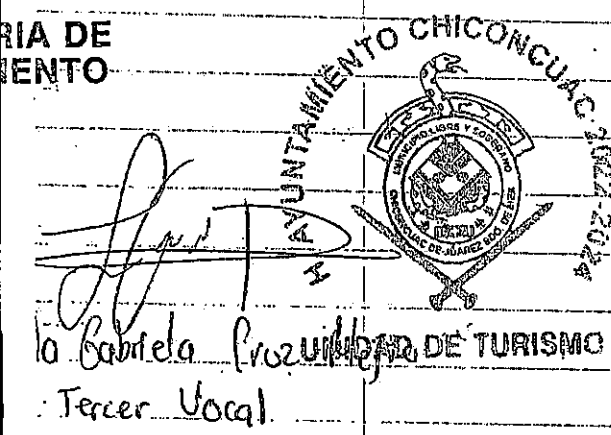 RIA DE
MENTO
H. AYUNTAMIENTO CHICONCUAC 2022-2024
MUNICIPIO LIBRE Y SOBERANO
CHICONCUAC DE JUAREZ EDO. DE MEX
la Gabriela Cruz
UNIDAD DE TURISMO
Tercer Vocal.